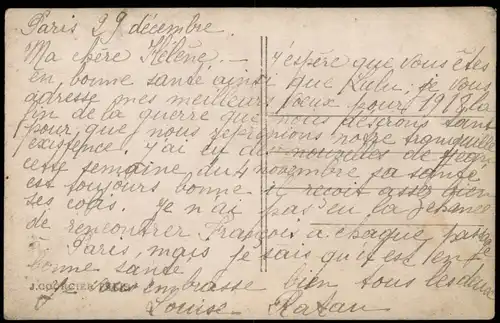 Paris 29 décembre.
Ma chère Hélène. — J'espère que vous êtes
en bonne santé ainsi que Lulu, je vous
adresse mes meilleurs vœux pour 1918, la
fin de la guerre que nous désirons tant
pour que nous reprenions notre tranquille
existence. J'ai eu des nouvelles de
cette semaine du 4 novembre sa santé
est toujours bonne il reçoit assez bien
ses colis. Je n'ai pas eu la chance
de rencontrer François à chaque passage
à Paris, mais je sais qu'il est en
bonne santé
Je vous embrasse bien tous les deux
Louise